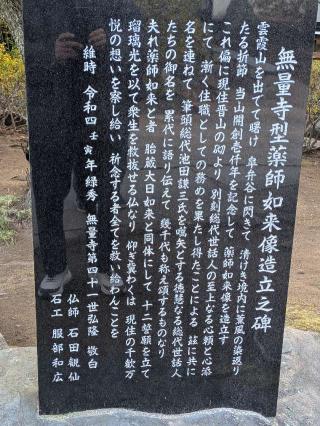 無量寺型薬師如来像造立之碑
雲霞山を出でて曙け 阜井谷に閃きて 清けき境内に薫風の染渡り
たる折節 当山開創壱仟年を記念して 薬師如来像を造立す
これ偏に現住晋山の砌より 別刻総代世話人の至上なる心頼と心添
にて 漸く住職としての務めを果たし得たことによる 茲に共に
名を連ねて 筆頭総代池田謙三氏を嚆矢とする徳慧なる総代世話人
たちの御名を 累代に語り伝えて 幾千代も称え頌するものなり
夫れ薬師如来と者 胎蔵大日如来と同体にして 十二誓願を立て
瑠璃光を以て衆生を救抜せる仏なり 仰ぎ冀わくは 現住の千歓万
悦の想いを察し給い 祈念する者全てを救い給わんことを
維時 令和四壬寅年緑秀 無量寺第四十一世弘隆 敬白
仏師 石田観仙
石工 服部和広